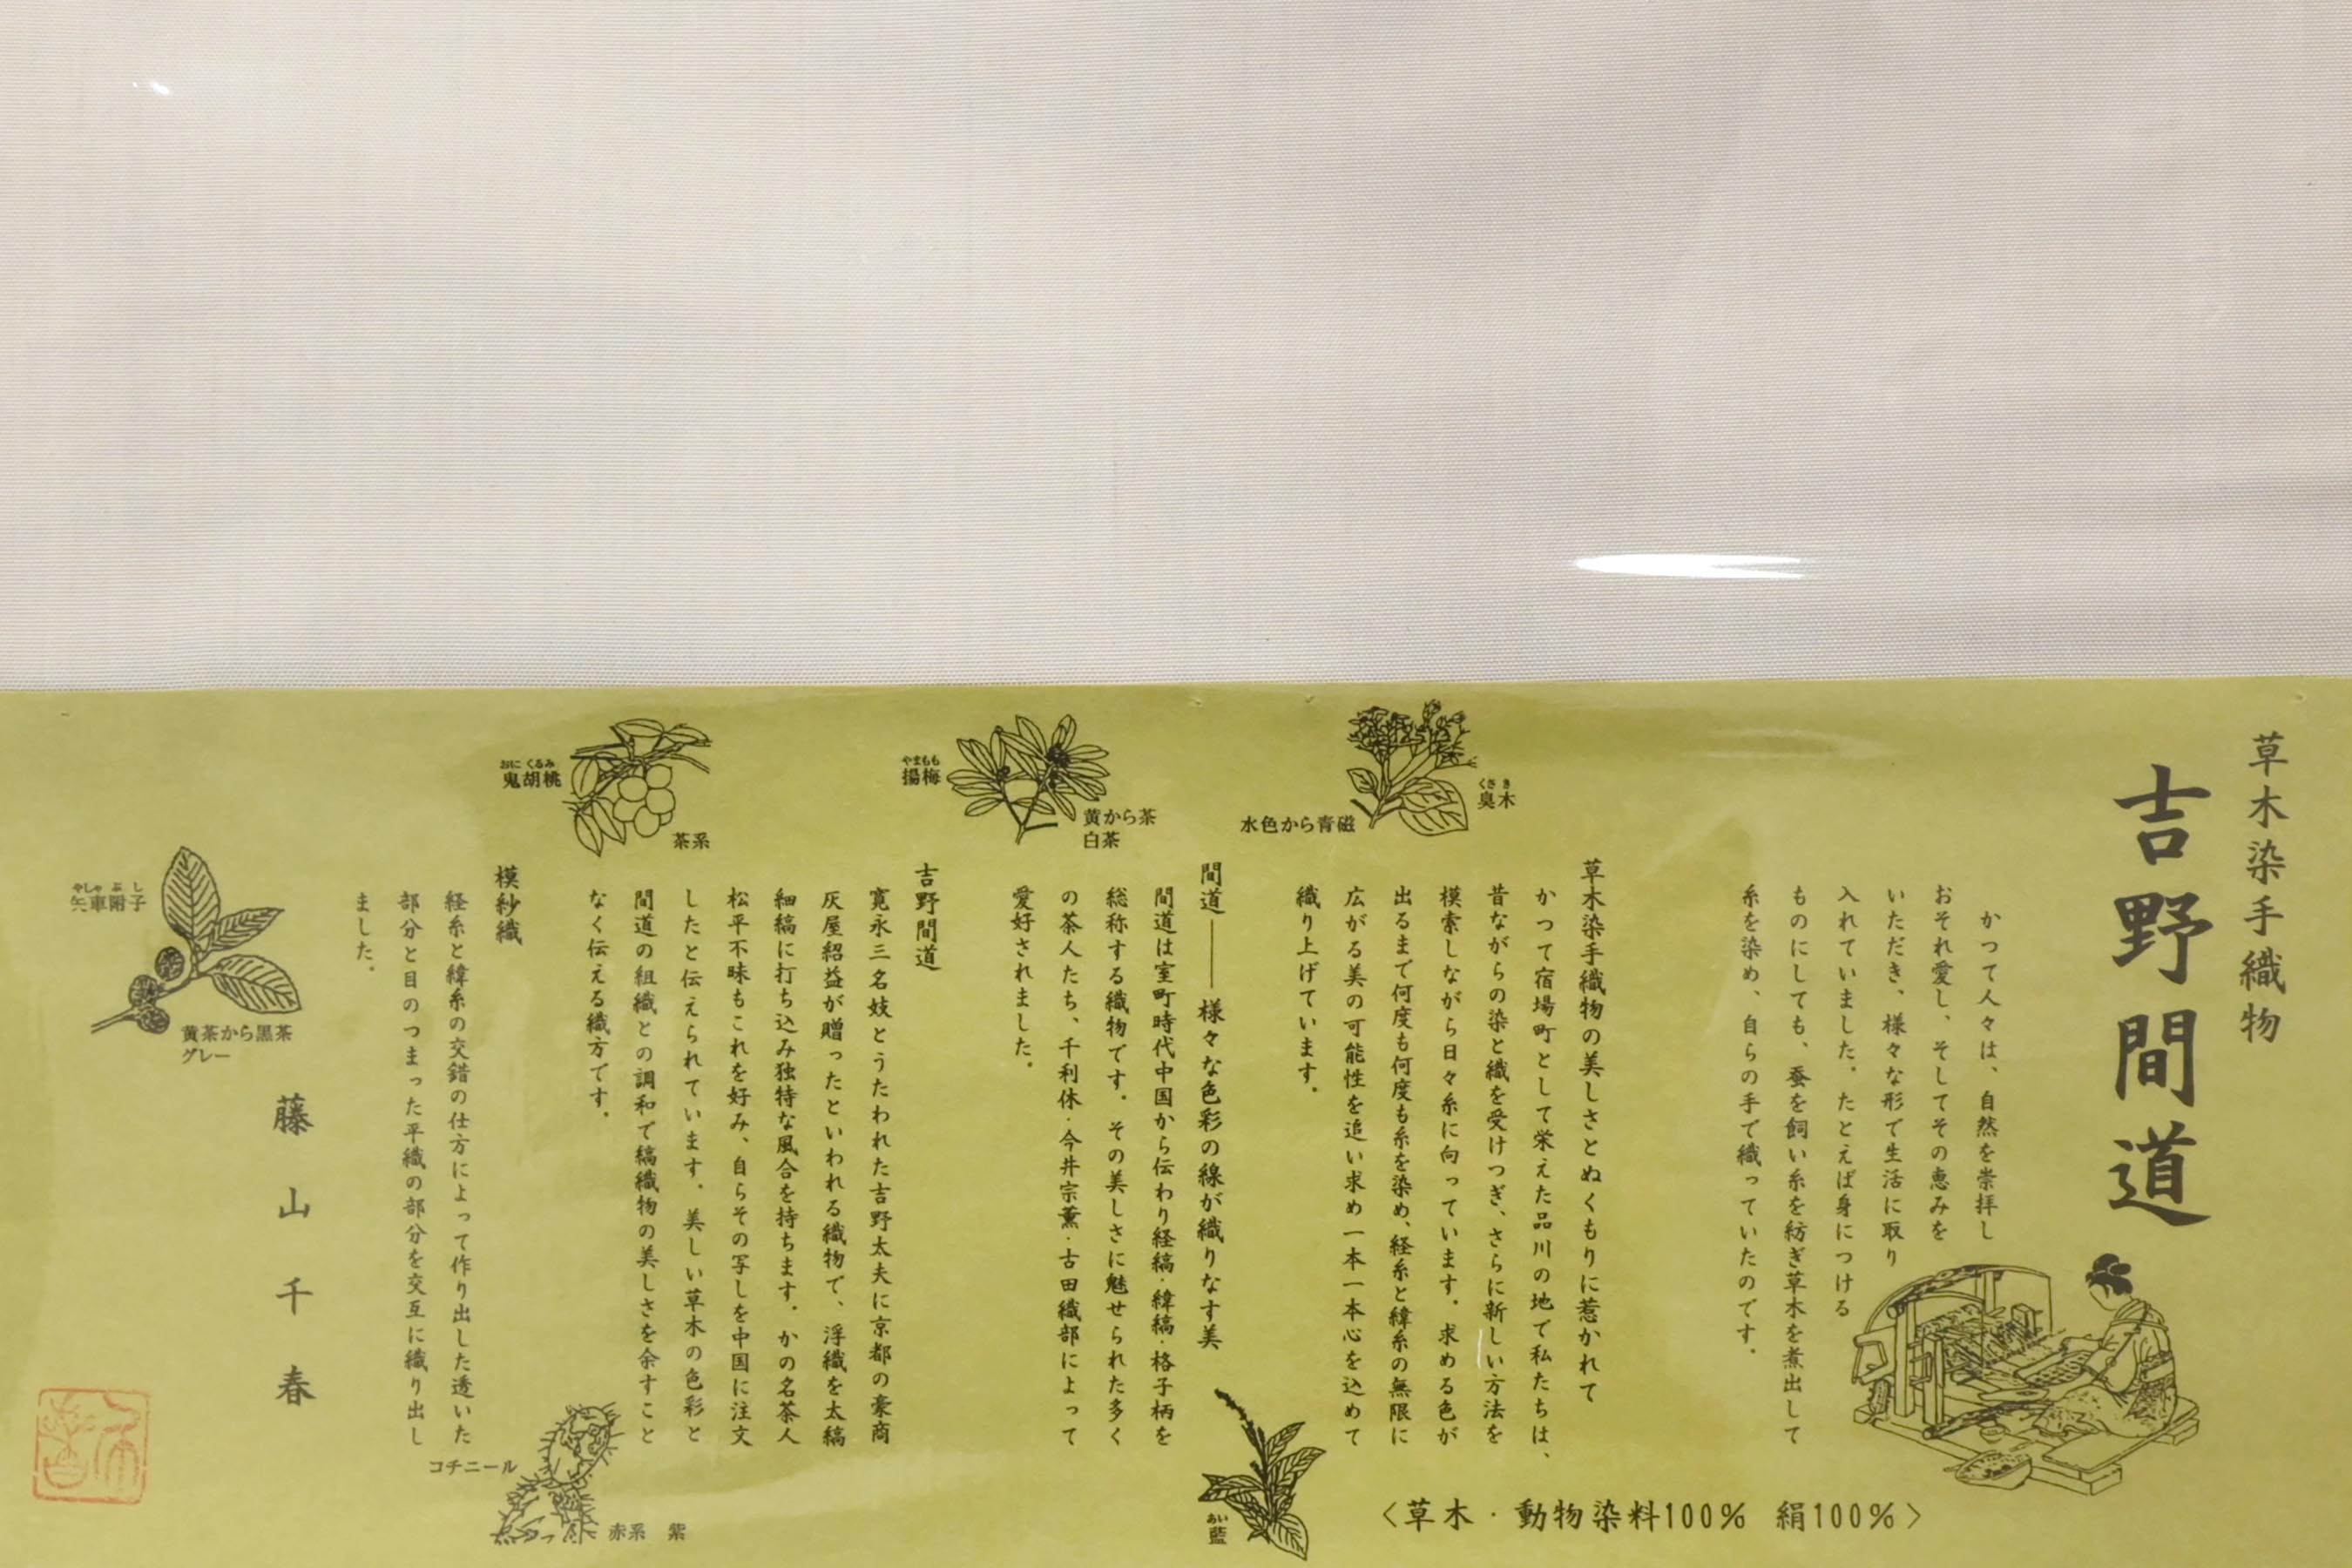 草木染手織物
吉野間道
かつて人々は、自然を崇拝し
おそれ愛し、そしてその恵みを
いただき、様々な形で生活に取り
入れていました。たとえば身につける
ものにしても、蚕を飼い糸を紡ぎ草木を煮出して
糸を染め、自らの手で織っていたのです。
草木染手織物の美しさとぬくもりに惹かれて
かつて宿場町として栄えた品川の地で私たちは、
昔ながらの染と織を受けつぎ、さらに新しい方法を
模索しながら日々糸に向っています。求める色が
出るまで何度も何度も糸を染め、経糸と緯糸の無限に
広がる美の可能性を追い求め一本一本心を込めて
織り上げています。
間道――様々な色彩の線が織りなす美
間道は室町時代中国から伝わり経縞·緯縞·格子柄を
総称する織物です。その美しさに魅せられた多く
の茶人たち、千利休·今井宗薫·古田織部によって
愛好されました。
吉野間道
寛永三名妓とうたわれた吉野太夫に京都の豪商
灰屋紹益が贈ったといわれる織物で、浮織を太縞
細縞に打ち込み独特な風合を持ちます。かの名茶人
松平不昧もこれを好み、自らその写しを中国に注文
したと伝えられています。美しい草木の色彩と
間道の組織との調和で縞織物の美しさを余すこと
なく伝える織方です。
模紗織
経糸と緯糸の交錯の仕方によって作り出した透いた
部分と目のつまった平織の部分を交互に織り出し
ました。
藤山千春
くさき
臭木
水色から青磁
やまもも
揚梅
黄から茶
白茶
おにくるみ
鬼胡桃
茶系
やしゃぶし
矢車附子
黄茶から黒茶
グレー
コチニール
赤系 紫
あい
藍
〈草木·動物染料100% 絹100%〉